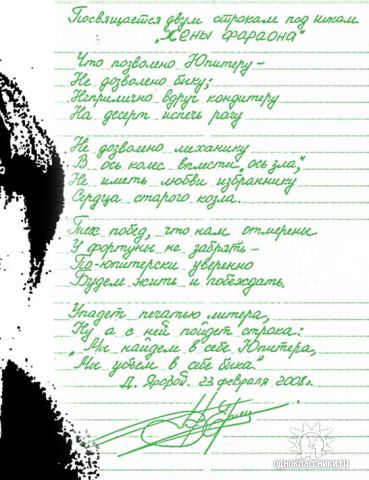 Посвящается двум строкам под ником
„Жены фараона"
Что позволено Юпитеру –
Не дозволено быку;
Неприлично вдруг кондитеру
На десерт испечь рагу
Не дозволено механику
В ось колес вплести „ось зла,"
Не иметь любви избраннику
Сердца старого козла.
Тех побед, что нам отмерены
У фортуны не забрать –
По-юпитерски уверенно
Будем жить и побеждать.
Упадет печатью литера,
Ну а с ней пойдет строка:
„Мы найдем в себе Юпитера,
Мы убьем в себе быка."
Д. Яровой. 23 февраля 2008г.
одноклассники.ru